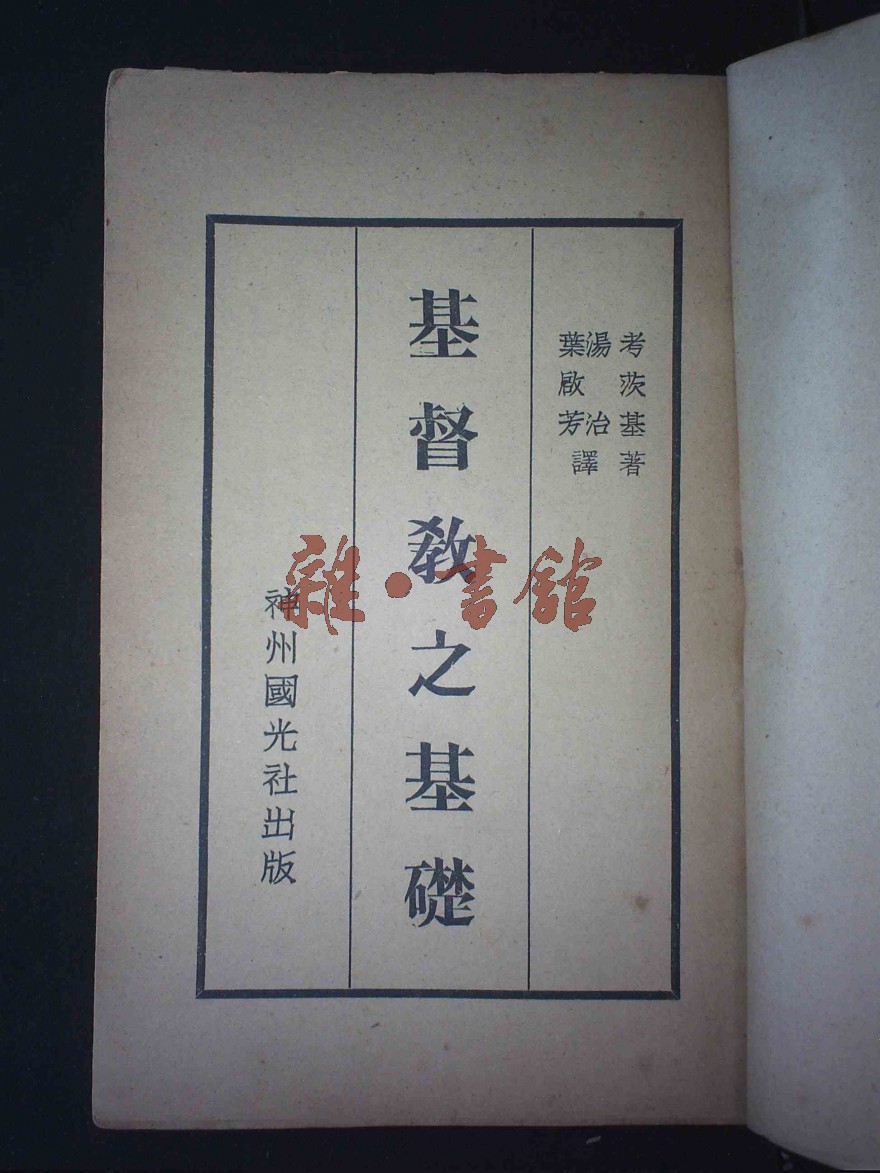 考茨基著
湯治
葉啟芳
譯
基督教之基礎
神州國光社出版
雜·書館